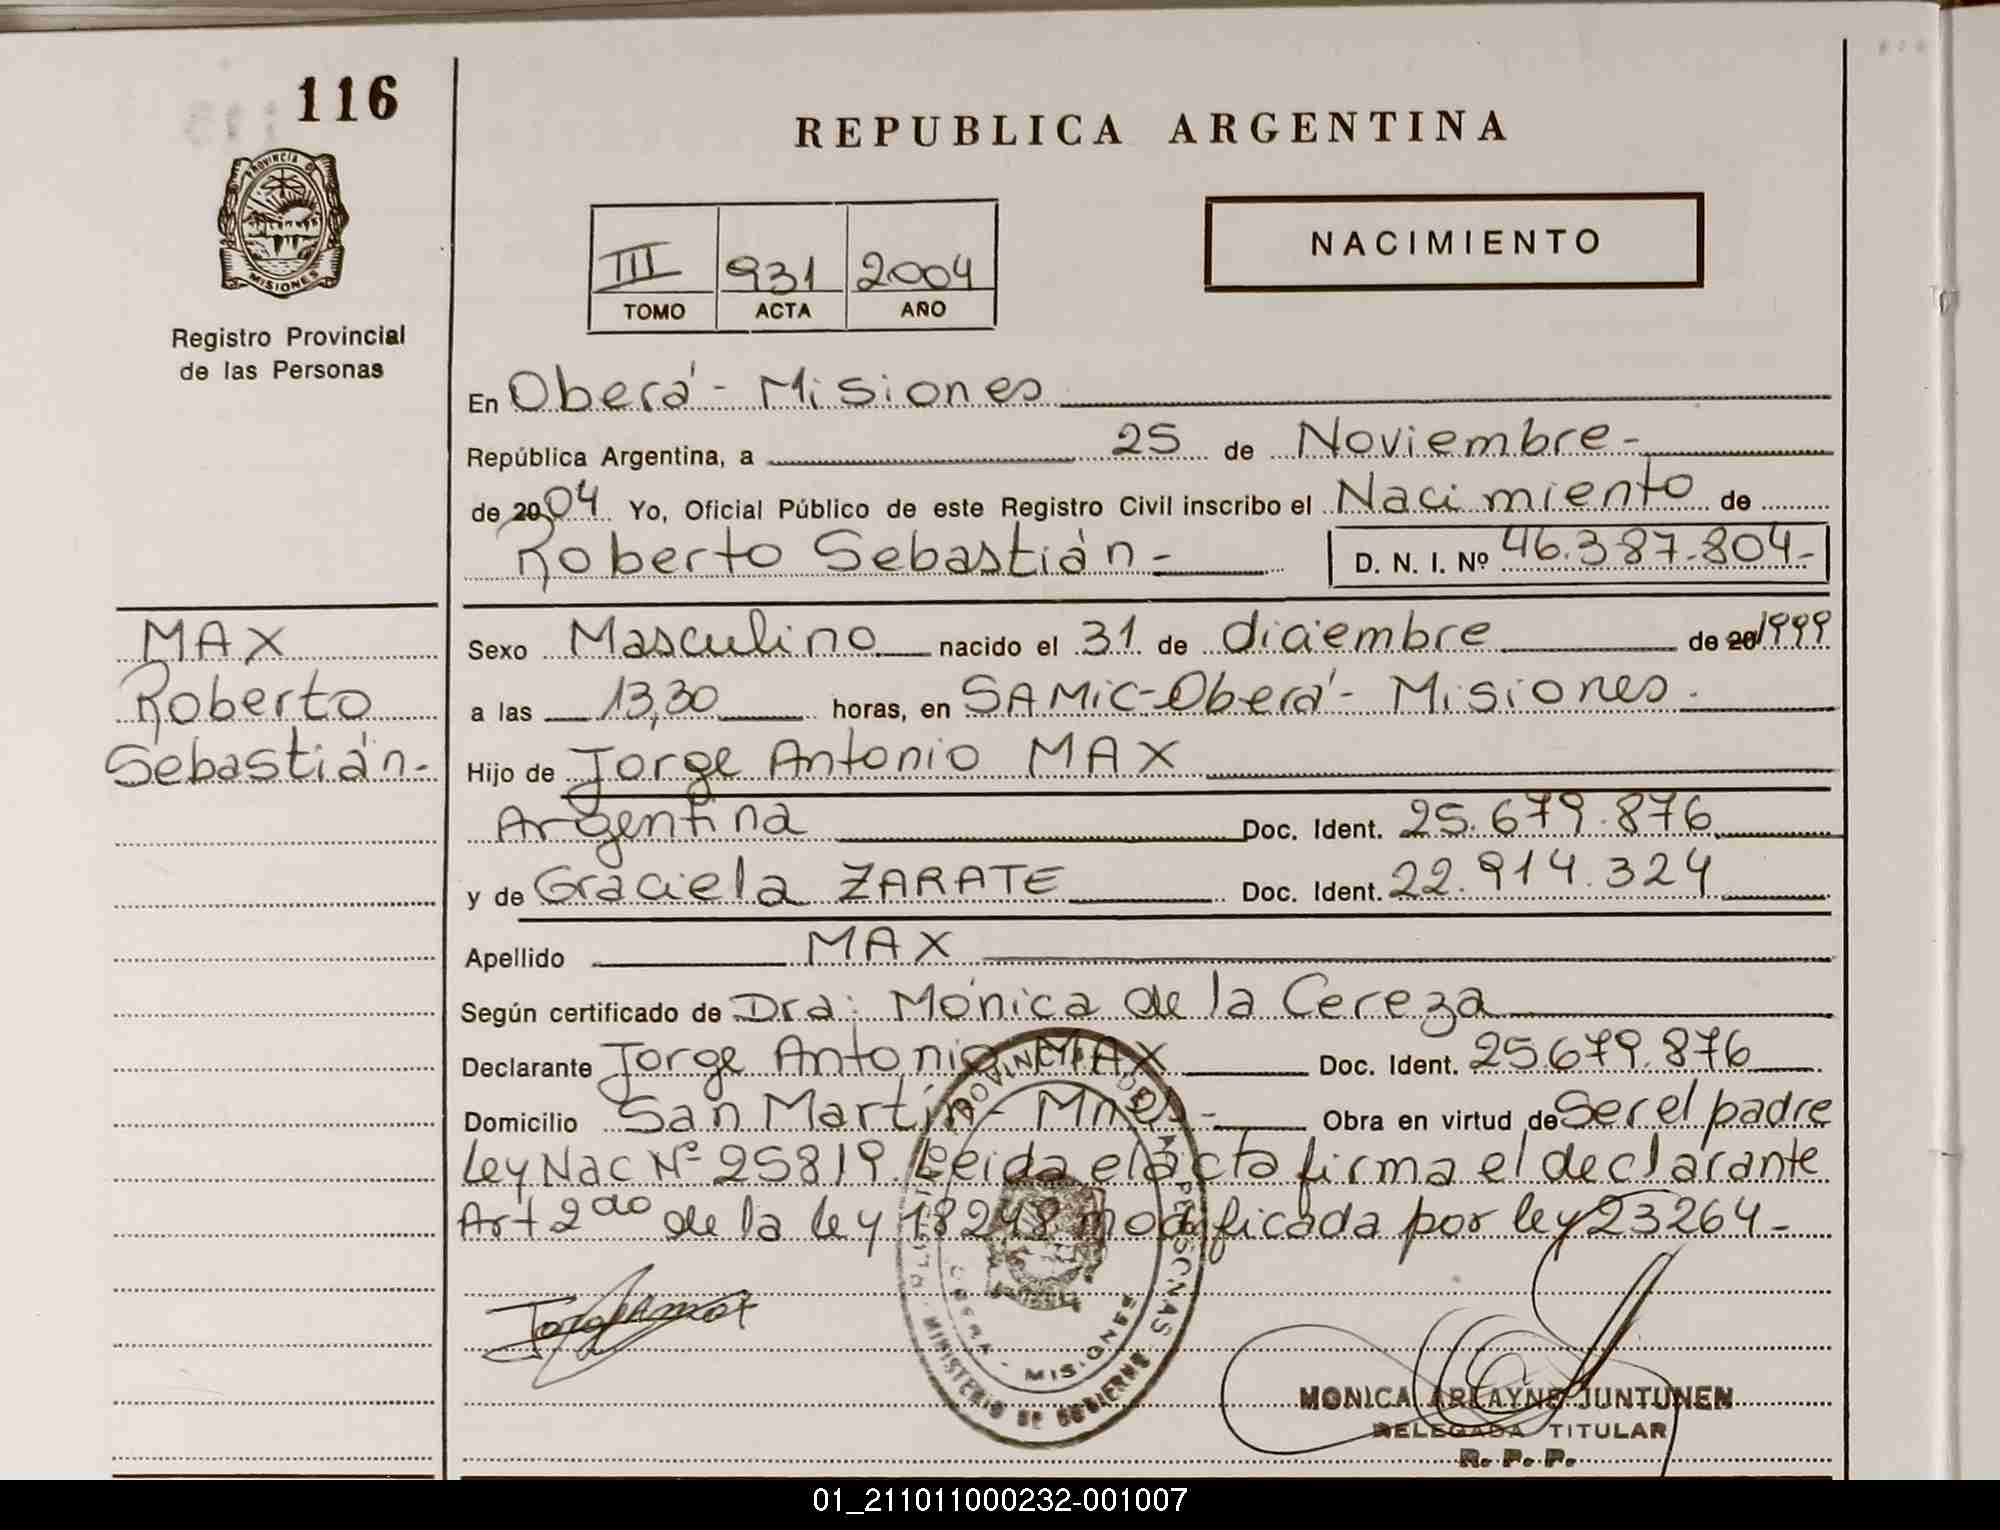 116
PROVINCIA DE
MISIONES
Registro Provincial
de las Personas
REPUBLICA ARGENTINA
III 931 2004
TOMO ACTA AÑO
NACIMIENTO
En Oberá - Misiones
República Argentina, a 25 de Noviembre -
de 2004 Yo, Oficial Público de este Registro Civil inscribo el Nacimiento de
Roberto Sebastián - D. N. I. Nº 46.387.804-
MAX
Roberto
Sebastián-
Sexo Masculino nacido el 31 de diciembre de 20 1999
a las 13,30 horas, en SAMiC-Oberá - Misiones.
Hijo de Jorge Antonio MAX
Argentina Doc. Ident. 25.679.876
y de Graciela ZARATE Doc. Ident. 22.914.324
Apellido MAX
Según certificado de Dra: Mónica de la Cereza
Declarante Jorge Antonio MAX Doc. Ident. 25.679.876
Domicilio San Martín - Mnes - Obra en virtud de Ser el padre
Ley Nac Nº 25819. Leida el acta firma el declarante
Art 2do de la ley 18248 modificada por ley 23264-
PROVINCIAL DE LAS PERSONAS
MINISTERIO DE GOBIERNO
OBERA - MISIONES
MONICA ARLAYNE JUNTUNEN
DELEGADA TITULAR
R. P. P.
01_211011000232-001007